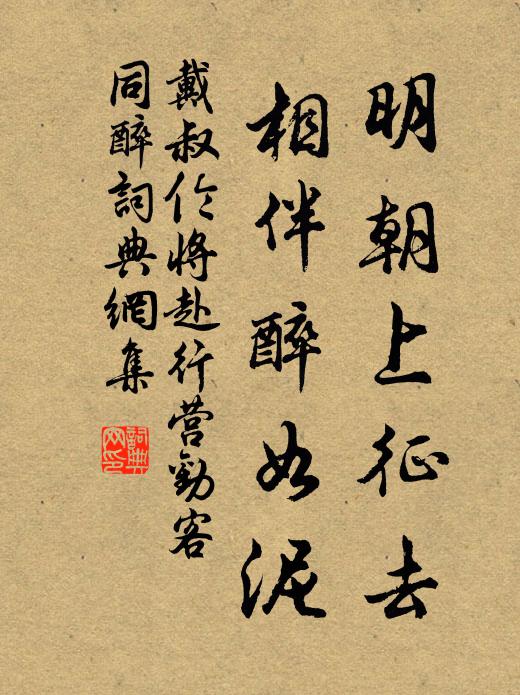 明朝上征去
相伴醉如泥
戴叔伦將赴行营勸客
同醉詞典網集
詞典网印